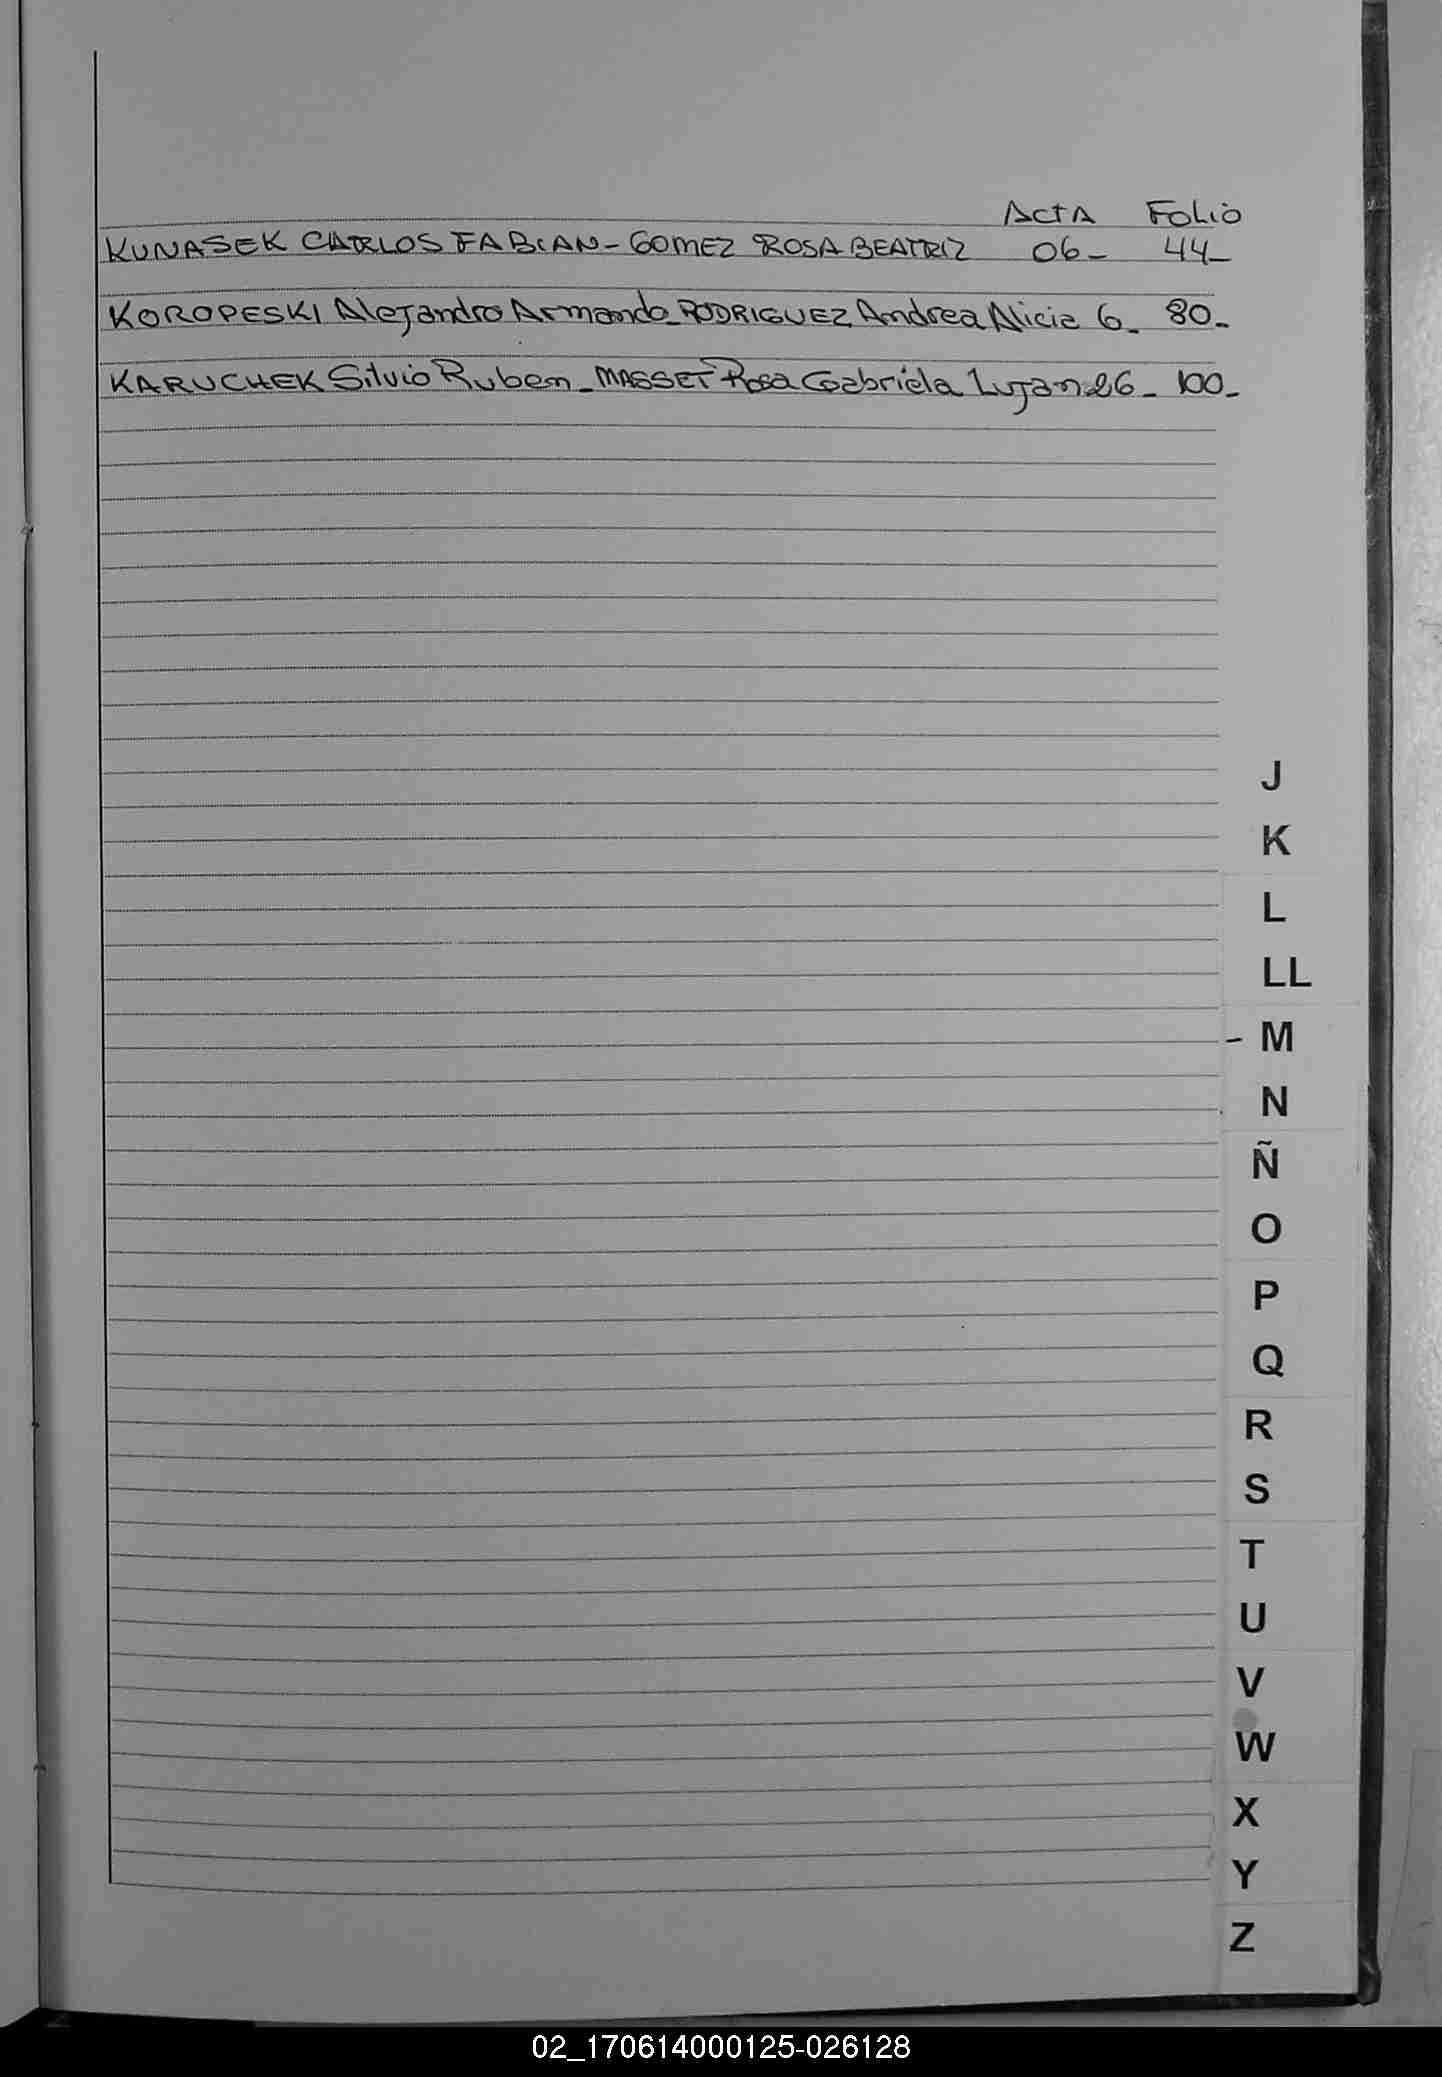 ACTA FOLIO
KUNASEK CARLOS FABIAN - GOMEZ ROSA BEATRIZ 06- 44-
KOROPESKI Alejandro Armando - RODRIGUEZ Andrea Alicia 6- 80-
KARUCHEK Silvio Ruben - MASSET Rosa Gabriela Lujan 26- 100-
J
K
L
LL
- M
N
Ñ
O
P
Q
R
S
T
U
V
W
X
Y
Z
02_170614000125-026128